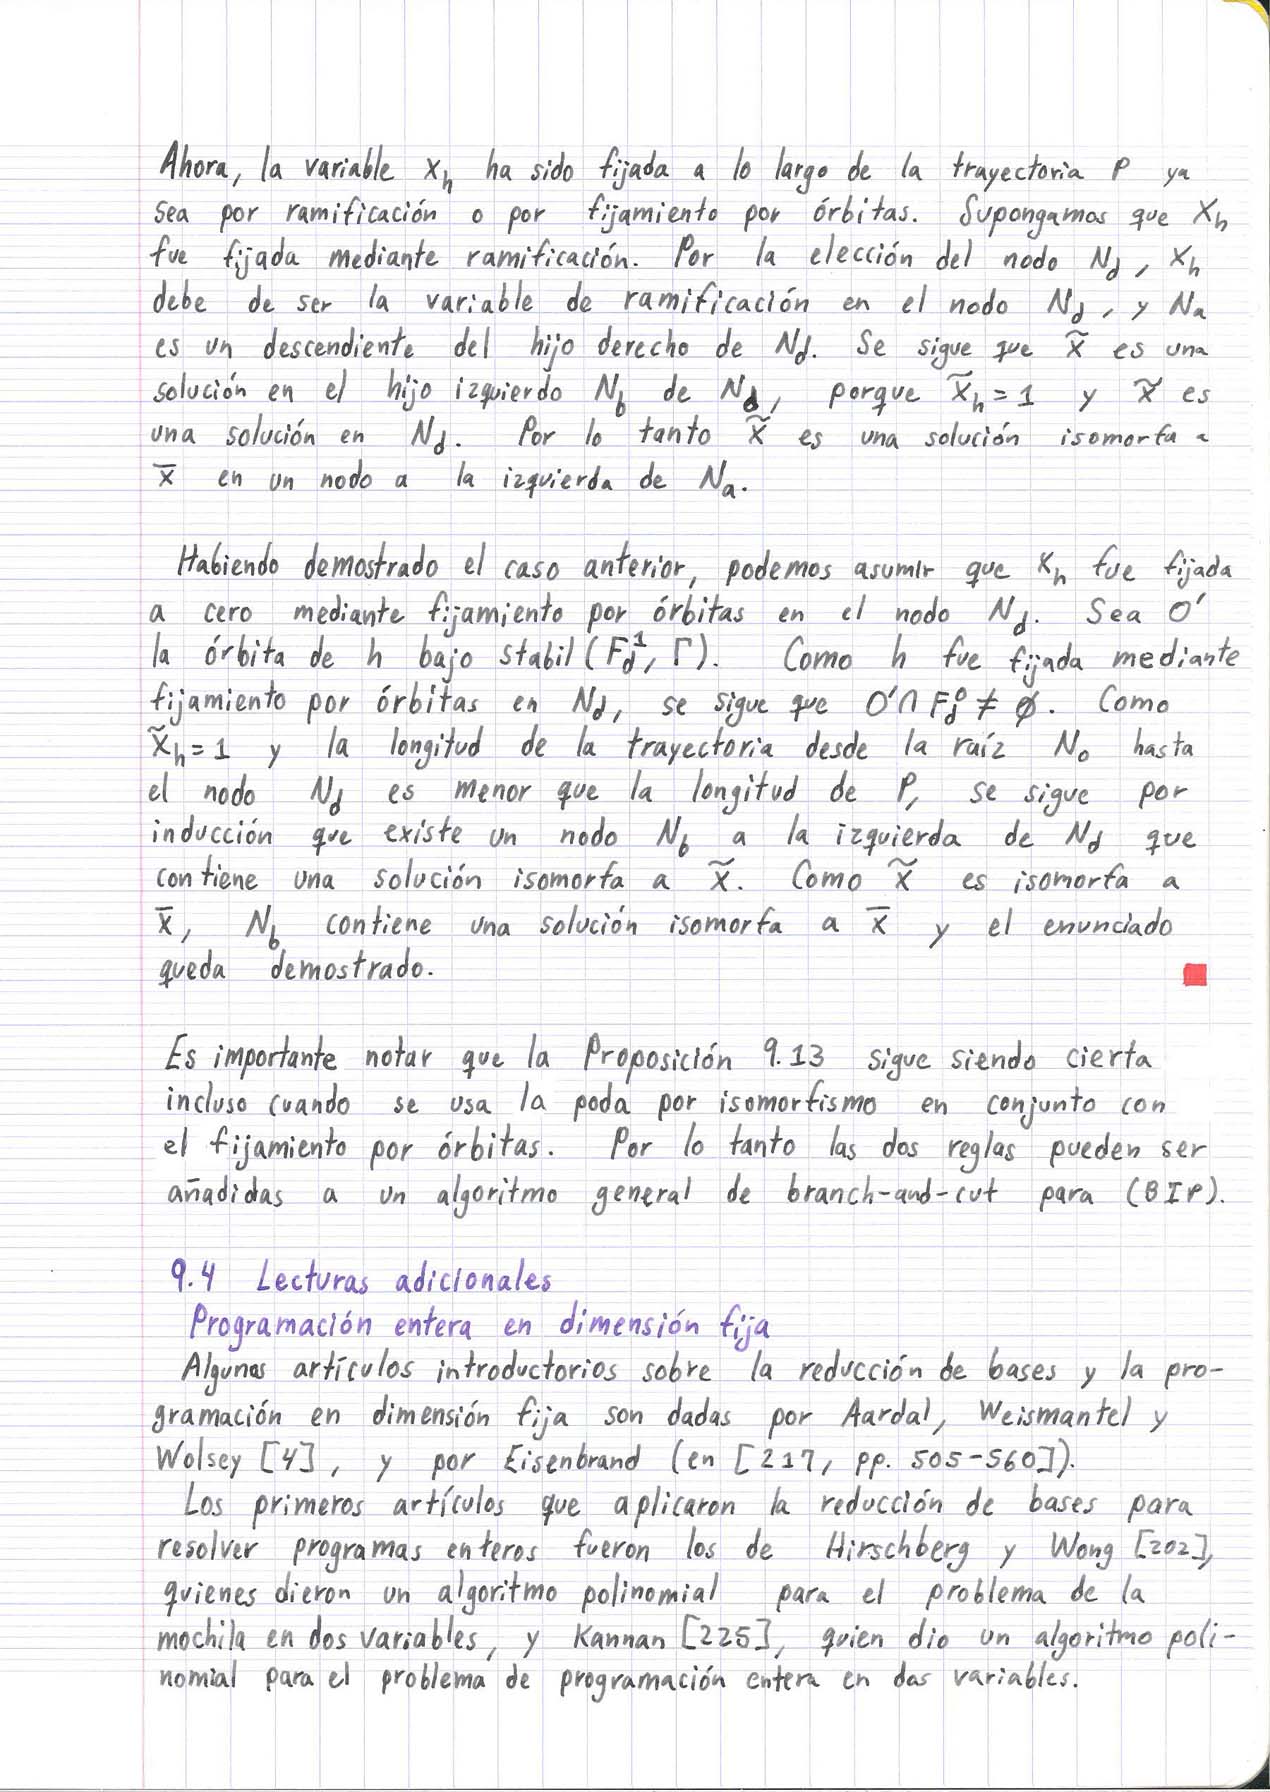 Ahora, la variable x_h ha sido fijada a lo largo de la trayectoria P ya
sea por ramificación o por fijamiento por órbitas. Supongamos que x_h
fue fijada mediante ramificación. Por la elección del nodo N_d, x_h
debe de ser la variable de ramificación en el nodo N_d, y N_a
es un descendiente del hijo derecho de N_d. Se sigue que x̃ es una
solución en el hijo izquierdo N_b de N_d, porque x̃_h = 1 y x̃ es
una solución en N_d. Por lo tanto x̃ es una solución isomorfa a
x̄ en un nodo a la izquierda de N_a.
Habiendo demostrado el caso anterior, podemos asumir que x_h fue fijada
a cero mediante fijamiento por órbitas en el nodo N_d. Sea O'
la órbita de h bajo stabil(F_d^1, Γ). Como h fue fijada mediante
fijamiento por órbitas en N_d, se sigue que O' ∩ F_d^0 ≠ ∅. Como
x̃_h = 1 y la longitud de la trayectoria desde la raíz N_0 hasta
el nodo N_d es menor que la longitud de P, se sigue por
inducción que existe un nodo N_b a la izquierda de N_d que
contiene una solución isomorfa a x̃. Como x̃ es isomorfa a
x̄, N_b contiene una solución isomorfa a x̄ y el enunciado
queda demostrado.
Es importante notar que la Proposición 9.13 sigue siendo cierta
incluso cuando se usa la poda por isomorfismo en conjunto con
el fijamiento por órbitas. Por lo tanto las dos reglas pueden ser
añadidas a un algoritmo general de branch-and-cut para (BIP).
9.4 Lecturas adicionales
Programación entera en dimensión fija
Algunos artículos introductorios sobre la reducción de bases y la pro-
gramación en dimensión fija son dadas por Aardal, Weismantel y
Wolsey [4], y por Eisenbrand (en [217, pp. 505-560]).
Los primeros artículos que aplicaron la reducción de bases para
resolver programas enteros fueron los de Hirschberg y Wong [202],
quienes dieron un algoritmo polinomial para el problema de la
mochila en dos variables, y Kannan [225], quien dio un algoritmo poli-
nomial para el problema de programación entera en dos variables.